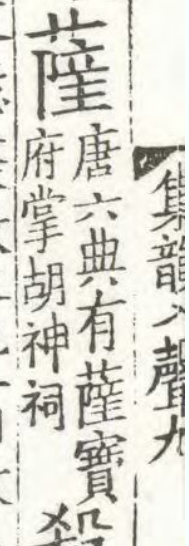 集韻入聲九
薩
唐六典有薩寶
府掌胡神祠